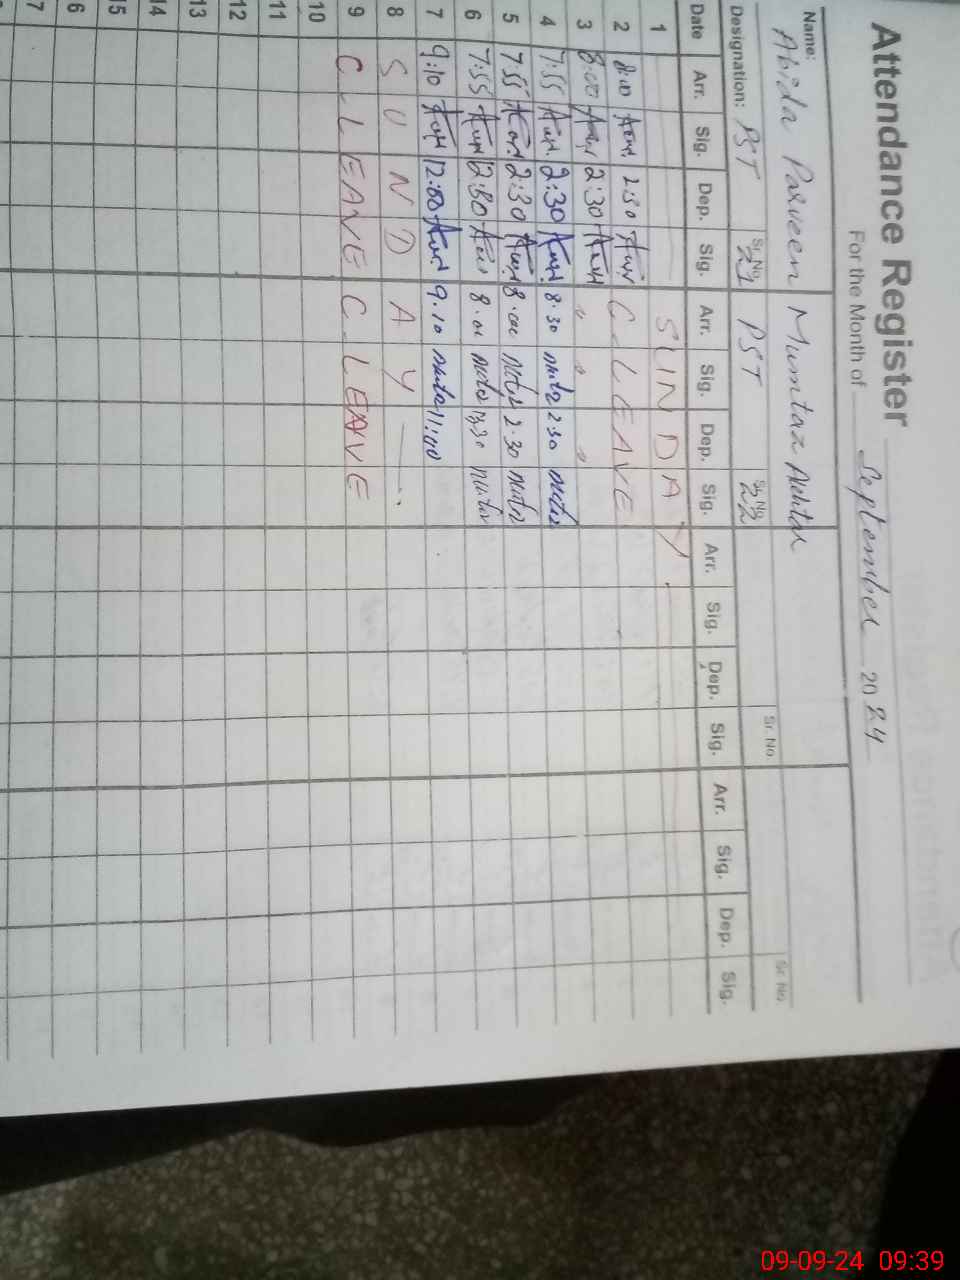 Attendance Register
For the Month of September 2024
Name: Abida Parveen Mumtaz Akhtar
Sr. No. 21 Sr. No. 22 Sr. No. Sr. No.
Designation: PST PST
Date Arr. Sig. Dep. Sig. Arr. Sig. Dep. Sig. Arr. Sig. Dep. Sig. Arr. Sig. Dep. Sig.
1 SUNDAY
2 8:00 2:30 C. LEAVE
3 8:00 2:30 " " "
4 7:55 2:30 8.30 2.30
5 7:55 2:30 8.00 2.30
6 7:55 12:30 8.00 12.30
7 9:10 12:00 9.10 11:00
8 SUNDAY
9 C. LEAVE C. LEAVE
10
11
12
13
14
15
6
7
09-09-24 09:39